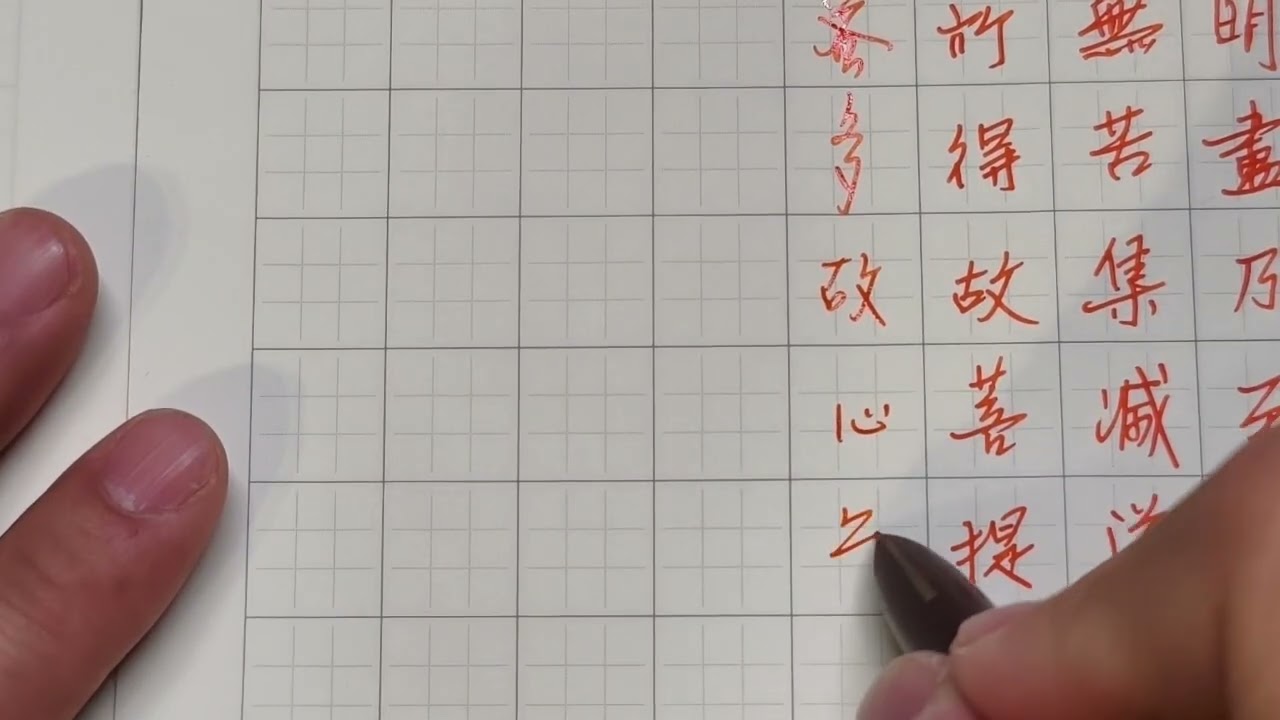 明盡乃至
無苦集滅道
所得故菩提
蜜多故心